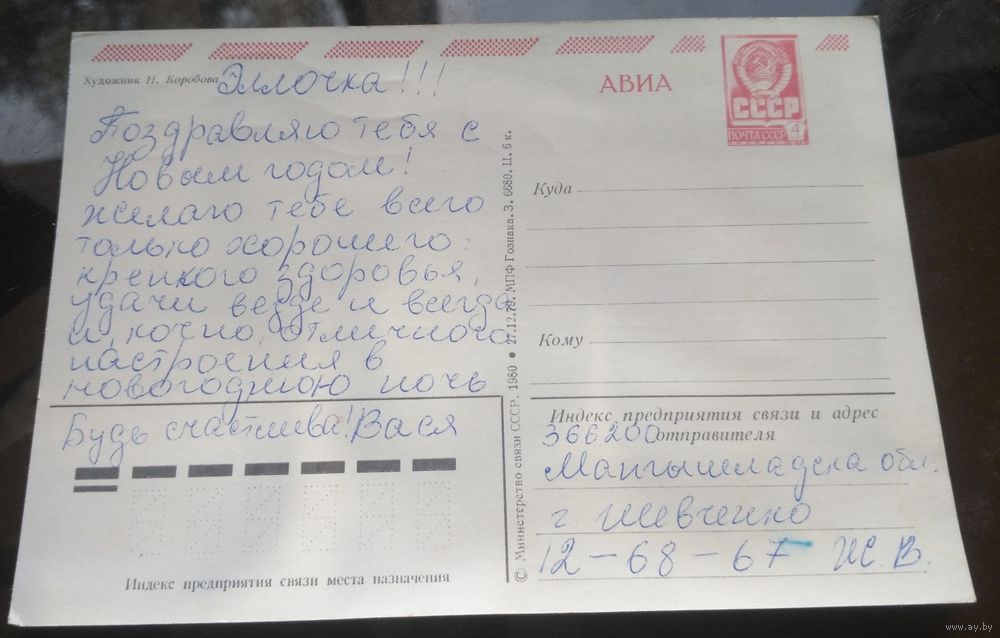 Художник Н. Коробова
Эллочка!!!
Поздравляю тебя с
Новым годом!
желаю тебе всего
только хорошего:
крепкого здоровья,
удачи везде и всегда
и, конечно, отличного
настроения в
новогоднюю ночь
Будь счастлива! Вася
Индекс предприятия связи места назначения
© Министерство связи СССР. 1980 • 27.12.79. МПФ Гознака. З. 6680. Ц. 6 к.
АВИА
СССР
ПОЧТА СССР 4
Куда
Кому
Индекс предприятия связи и адрес
366200 отправителя
Мангышладска обл.
г Шевченко
12-68-67 Ж. В.
www.ay.by